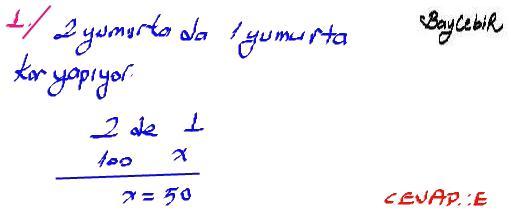 1./ 2 yumurta da 1 yumurta
BayCebiR
kar yapıyor.
2 de 1
100 x
x = 50
CEVAP.:E